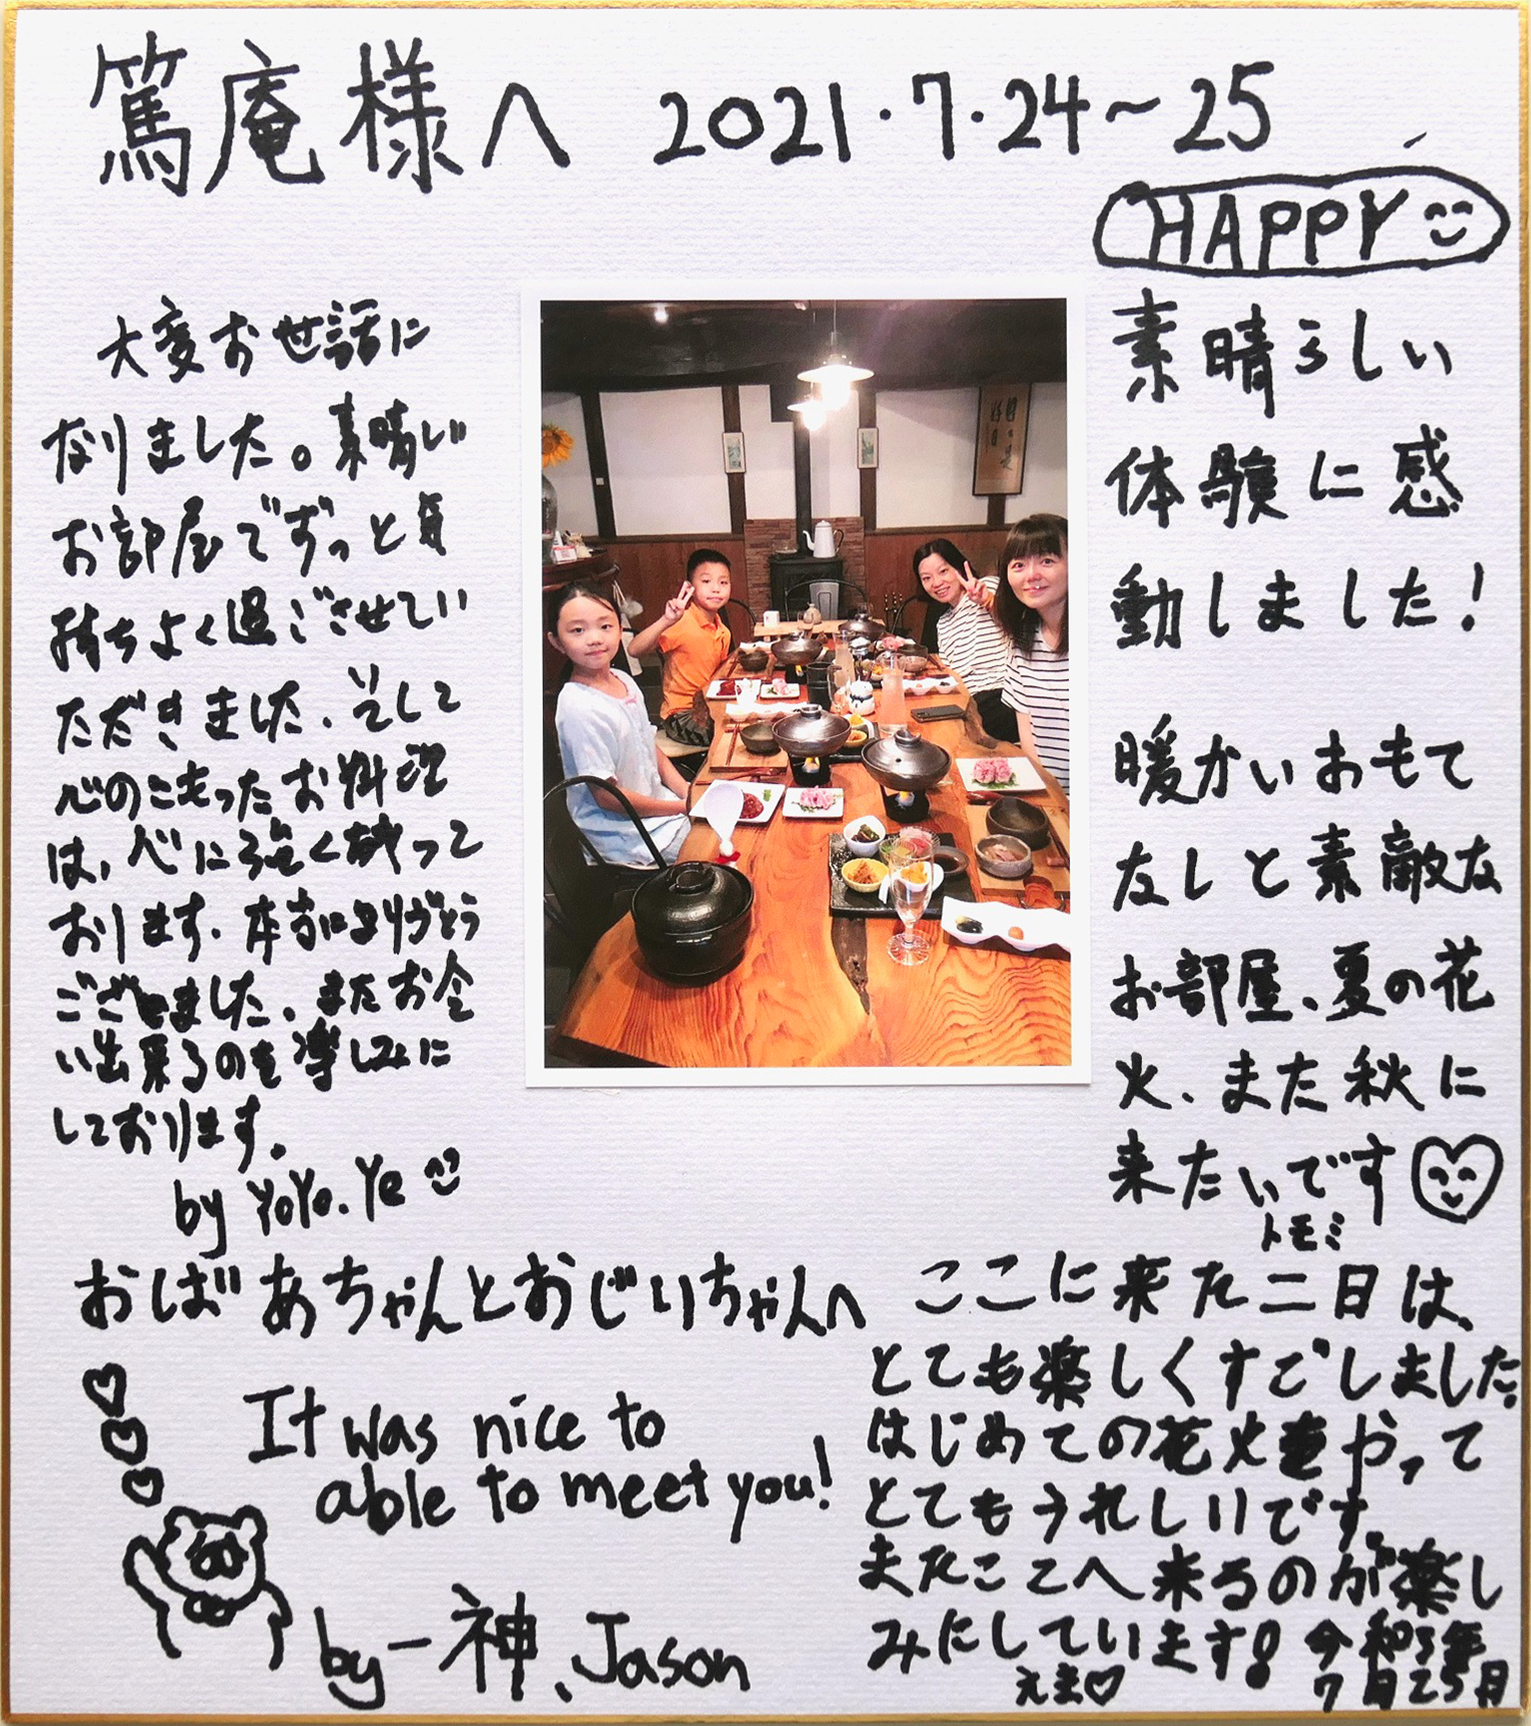 篤庵様へ 2021・7・24〜25
HAPPY
大変お世話に
なりました。素晴しい
お部屋でずっと気
持ちよく過ごさせてい
ただきました、そして
心のこもったお料理
は、心に強く残って
おります。本当にありがとう
ございました、またお会
い出来るのを楽しみに
しております。
by YoYo.Ye
素晴らしい
体験に感
動しました!
暖かいおもて
なしと素敵な
お部屋、夏の花
火、また秋に
来たいです
トモミ
おばあちゃんとおじいちゃんへ
It was nice to
able to meet you!
by 一神、Jason
ここに来た二日は、
とても楽しくすごしました。
はじめての花火をやって
とてもうれしいです。
またここへ来るのが楽し
みにしています! 令和3年
えま♡ 7月25日